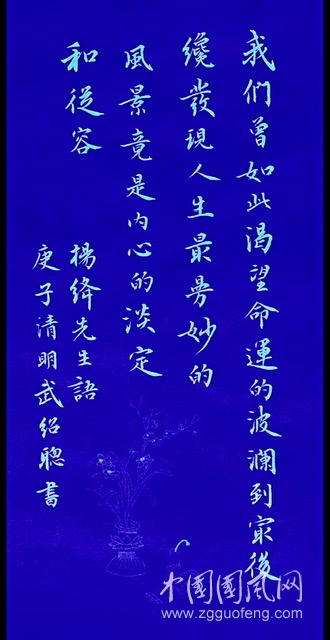 我们曾如此渴望命運的波澜到最後
纔發現人生最曼妙的
風景竟是内心的淡定
和從容
楊絳先生語
庚子清明武紹聰書
中国国风网
www.zgguofeng.com